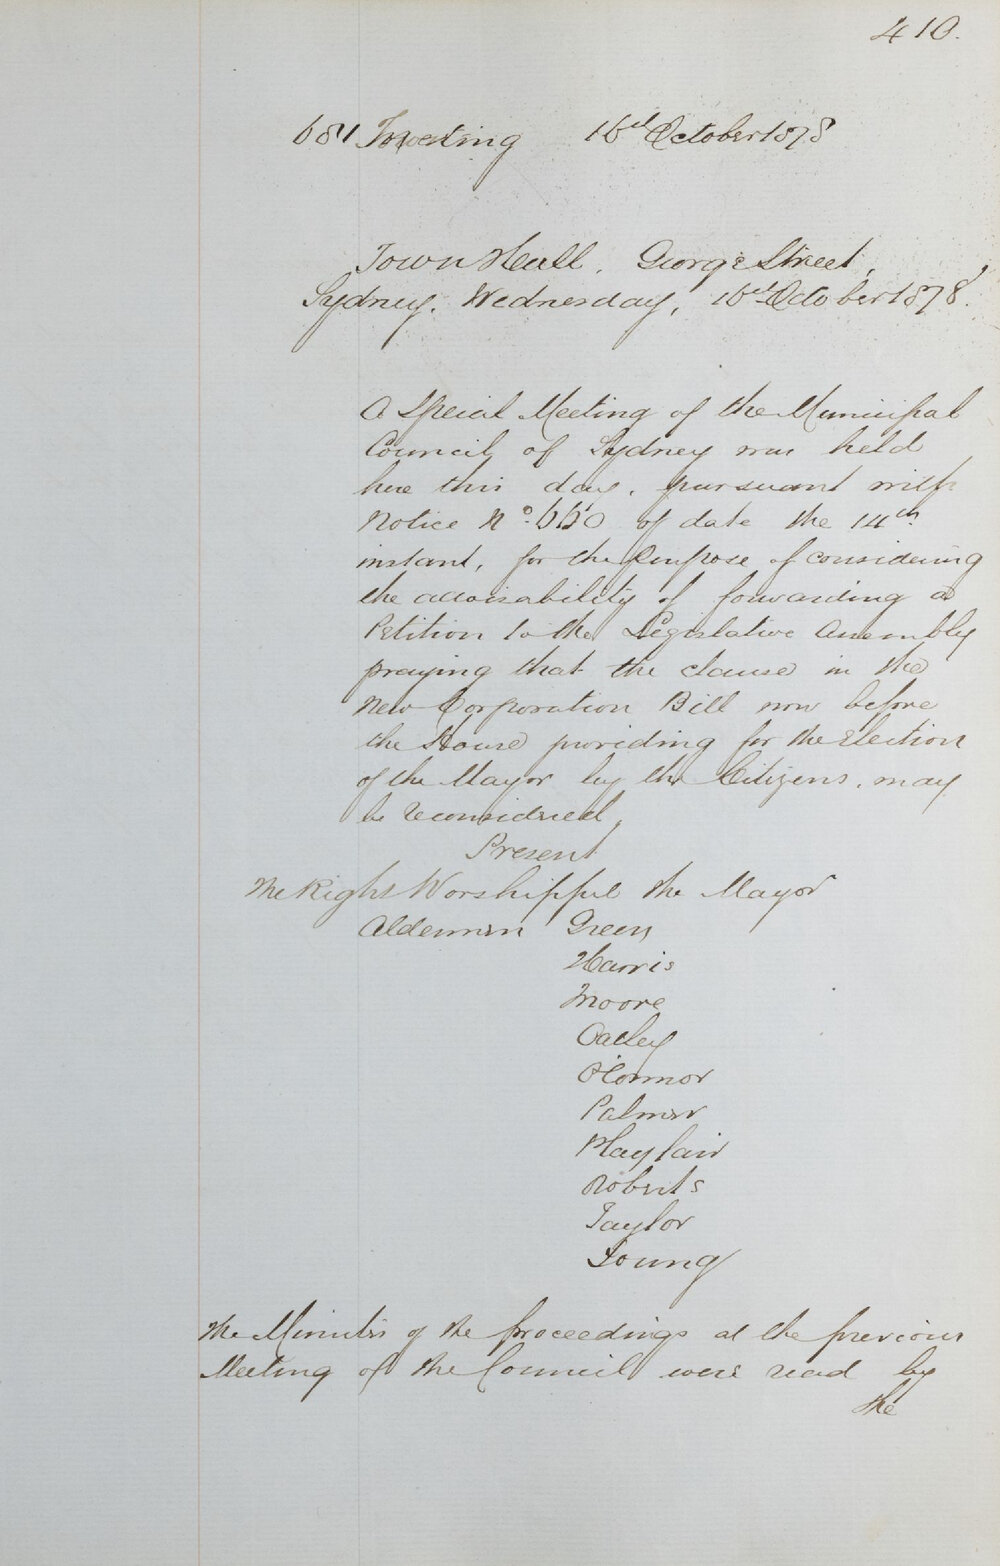 410.
681 Meeting 16th October 1878
Town Hall, George Street,
Sydney, Wednesday, 16th October 1878.
A Special Meeting of the Municipal
Council of Sydney was held
here this day, pursuant with
Notice No. 650 of date the 14th
instant, for the purpose of considering
the advisability of forwarding a
Petition to the Legislative Assembly
praying that the clause in the
New Corporation Bill now before
the House providing for the Election
of the Mayor by the Citizens, may
be reconsidered,
Present
The Right Worshipful the Mayor
Aldermen Green
Harris
Moore
Oatley
O'Connor
Palmer
Playfair
Roberts
Taylor
Young
The Minutes of the proceedings at the previous
Meeting of the Council were read by
the